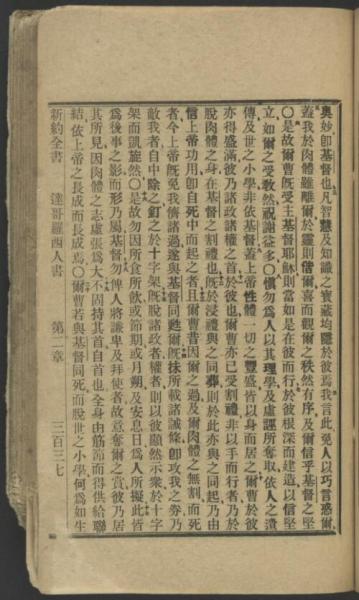 奧妙卽基督也凡智慧及知識之寶藏均隱於彼焉我言此免人以巧言惑爾
蓋我於肉體雖離爾於靈則偕爾喜而觀爾之秩然有序及爾信乎基督之堅
〇是故爾曹旣受主基督耶穌則當如是在彼而行於彼根深而建造以信堅
立如爾之受敎然祝謝益多〇愼勿爲人以其理學及虛誣所奪取依人之遺
傳及世之小學非依基督蓋上帝性體一切之豐盛皆以身而居之爾曹於彼
亦得盛滿彼乃諸政諸權之首於彼也爾曹亦已受割禮非以手而行者乃於
脫肉體之身在基督之割禮也旣於浸禮與之同葬則於此亦與之同起乃由
信上帝功用卽自死中而起之者且爾曹昔因爾之過及爾肉體之無割而死
者今上帝旣免我儕諸過遂與基督同甦爾旣抹所載諸誡條卽攻我之券乃
敵我者自中除之釘之於十字架旣脫諸政者權者則以彼顯然示衆於十字
架而凱旋然〇是故勿因所食所飲或節期或月朔及安息日爲人所擬此皆
爲後事之影而形乃屬基督勿俾人將謙卑及拜使者故意奪爾之賞彼乃居
其所見因肉體之志虛張爲大不固持其首自首也全身由筋節而得供給聯
結依上帝之長成而長成焉〇爾曹若與基督同死而脫世之小學何爲如生
新約全書 達哥羅西人書 第二章 三百三七